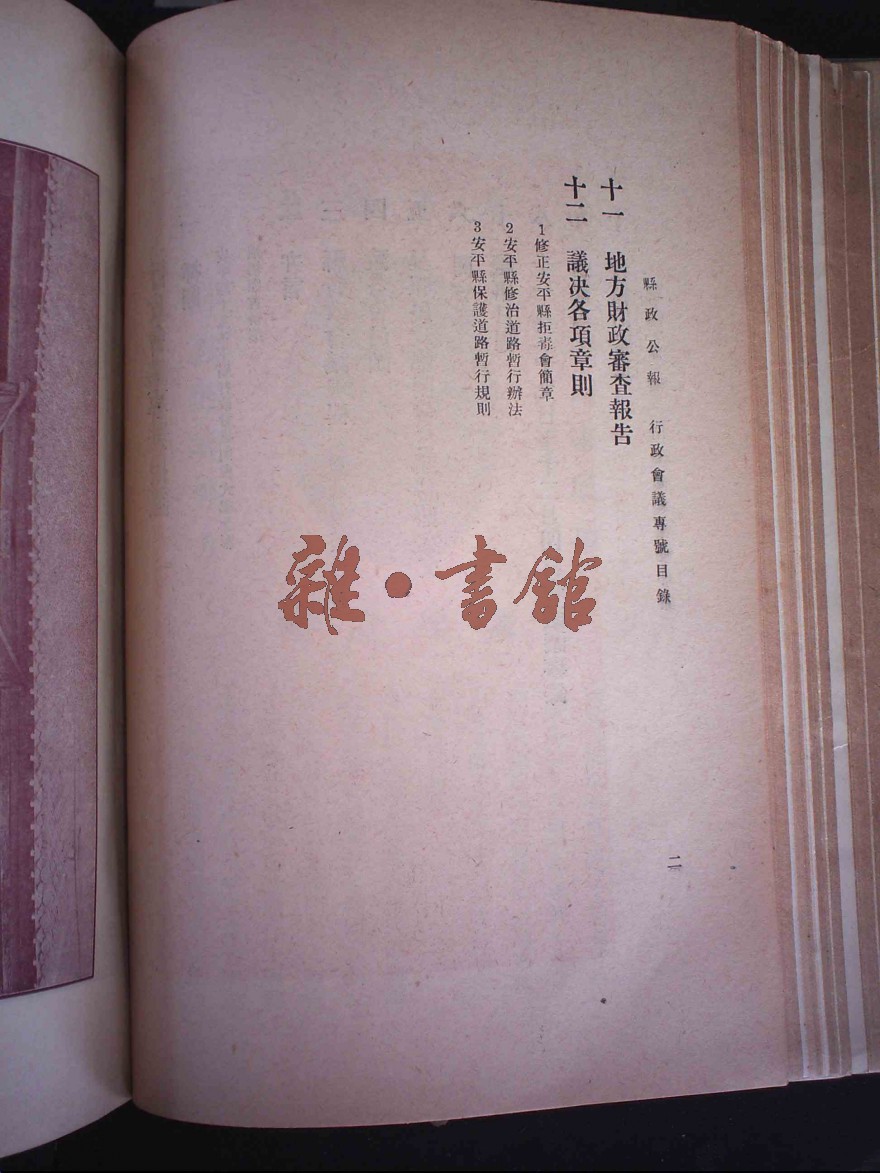 縣政公報　行政會議專號目錄
二
十一　地方財政審查報告
十二　議決各項章則
1修正安平縣拒毒會簡章
2安平縣修治道路暫行辦法
3安平縣保護道路暫行規則
雜•書館